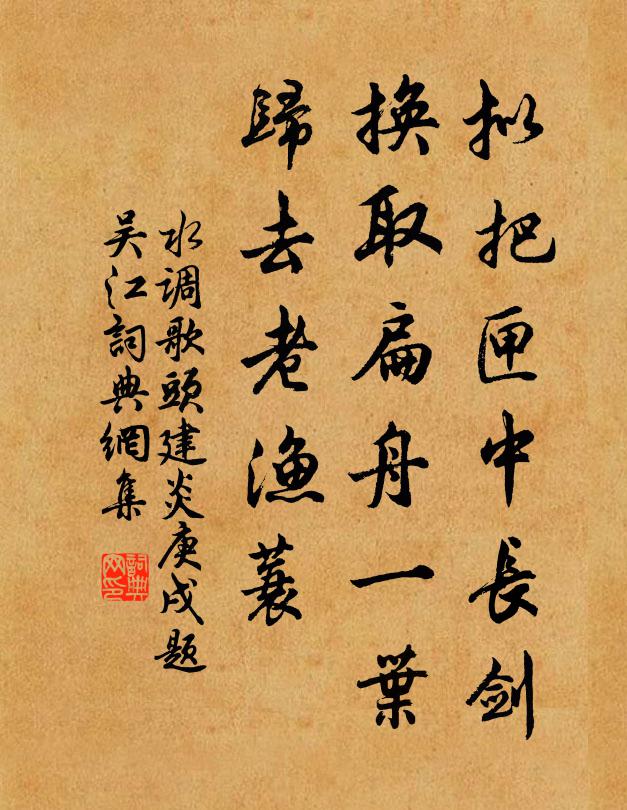 拟把匣中長剑
換取扁舟一葉
歸去老漁蓑
水调歌頭建炎庚戌题
吴江詞典網集
詞典
网印